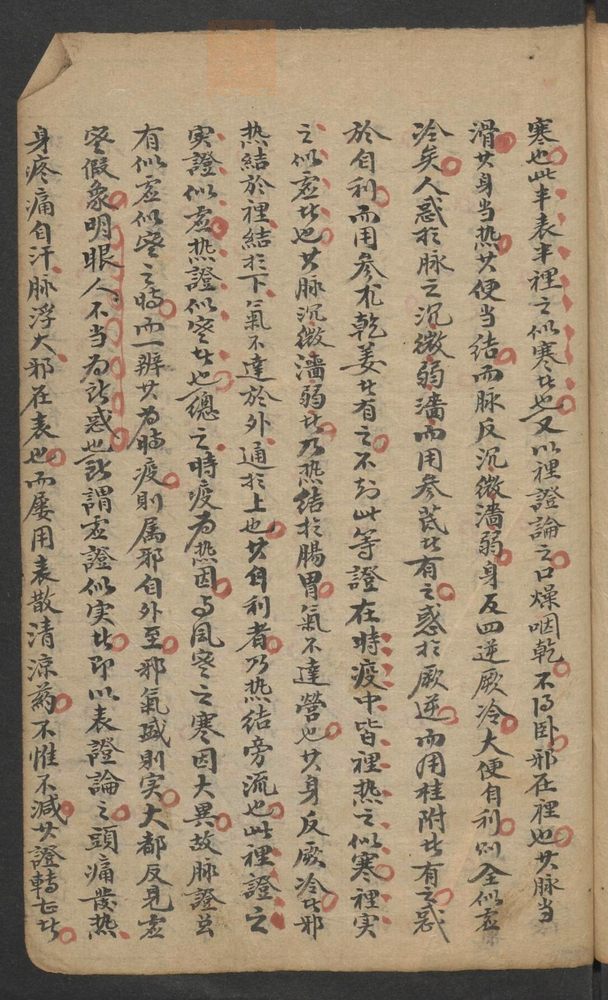 寒也此半表半裡之似寒者也又以裡證論之口燥咽乾不得卧邪在裡也其脉当
滑其身当热其便当结而脉反沉微濇弱身反四逆厥冷大便自利则全似虚
冷矣人惑於脉之沉微弱濇而用参芪者有之惑於厥逆而用桂附者有之惑
於自利而用参朮乾姜者有之不知此等證在時疫中皆裡热之似寒裡实
之似虚者也其脉沉微濇弱者乃热结於腸胃氣不達營也其身反厥冷者邪
热結於裡結於下氣不達於外通於上也其自利者乃热结旁流也此裡證之
实證似虚热證似寒者也總之時疫为热因与風寒之寒因大異故脉證並
有似虚似寒之時而一辨其为時疫則属邪自外至邪氣盛則实大都反見虚
寒假象明眼人不当为所惑也所謂虚證似实者即以表證論之頭痛發热
身疼痛自汗脉浮大邪在表也而屡用表散清涼药不惟不減其證轉甚者